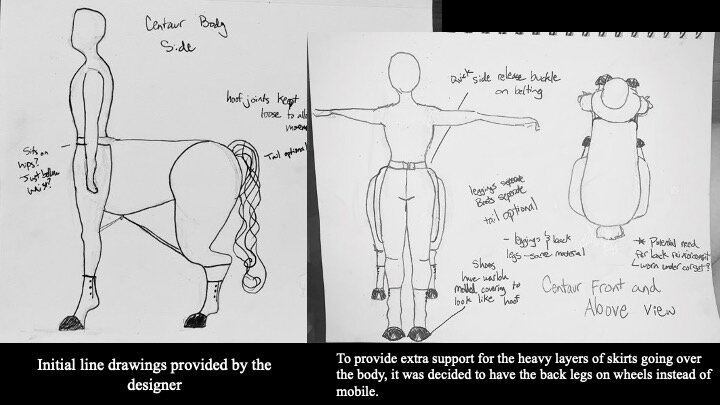 Centaur Body
Side
hoof joints kept
loose to all
movem
Sits on
hips?
Just below
waist?
Tail optional
Initial line drawings provided by the
designer
Quick side release buckle
on belting
leggings separate
Body separate
tail optional
- leggings & back
legs - same material
Shoes
have
molded covering to
look like hoof
* Potential need
for back reinforcement
worn under corset?
Centaur Front and
Above View
To provide extra support for the heavy layers of skirts going over
the body, it was decided to have the back legs on wheels instead of
mobile.